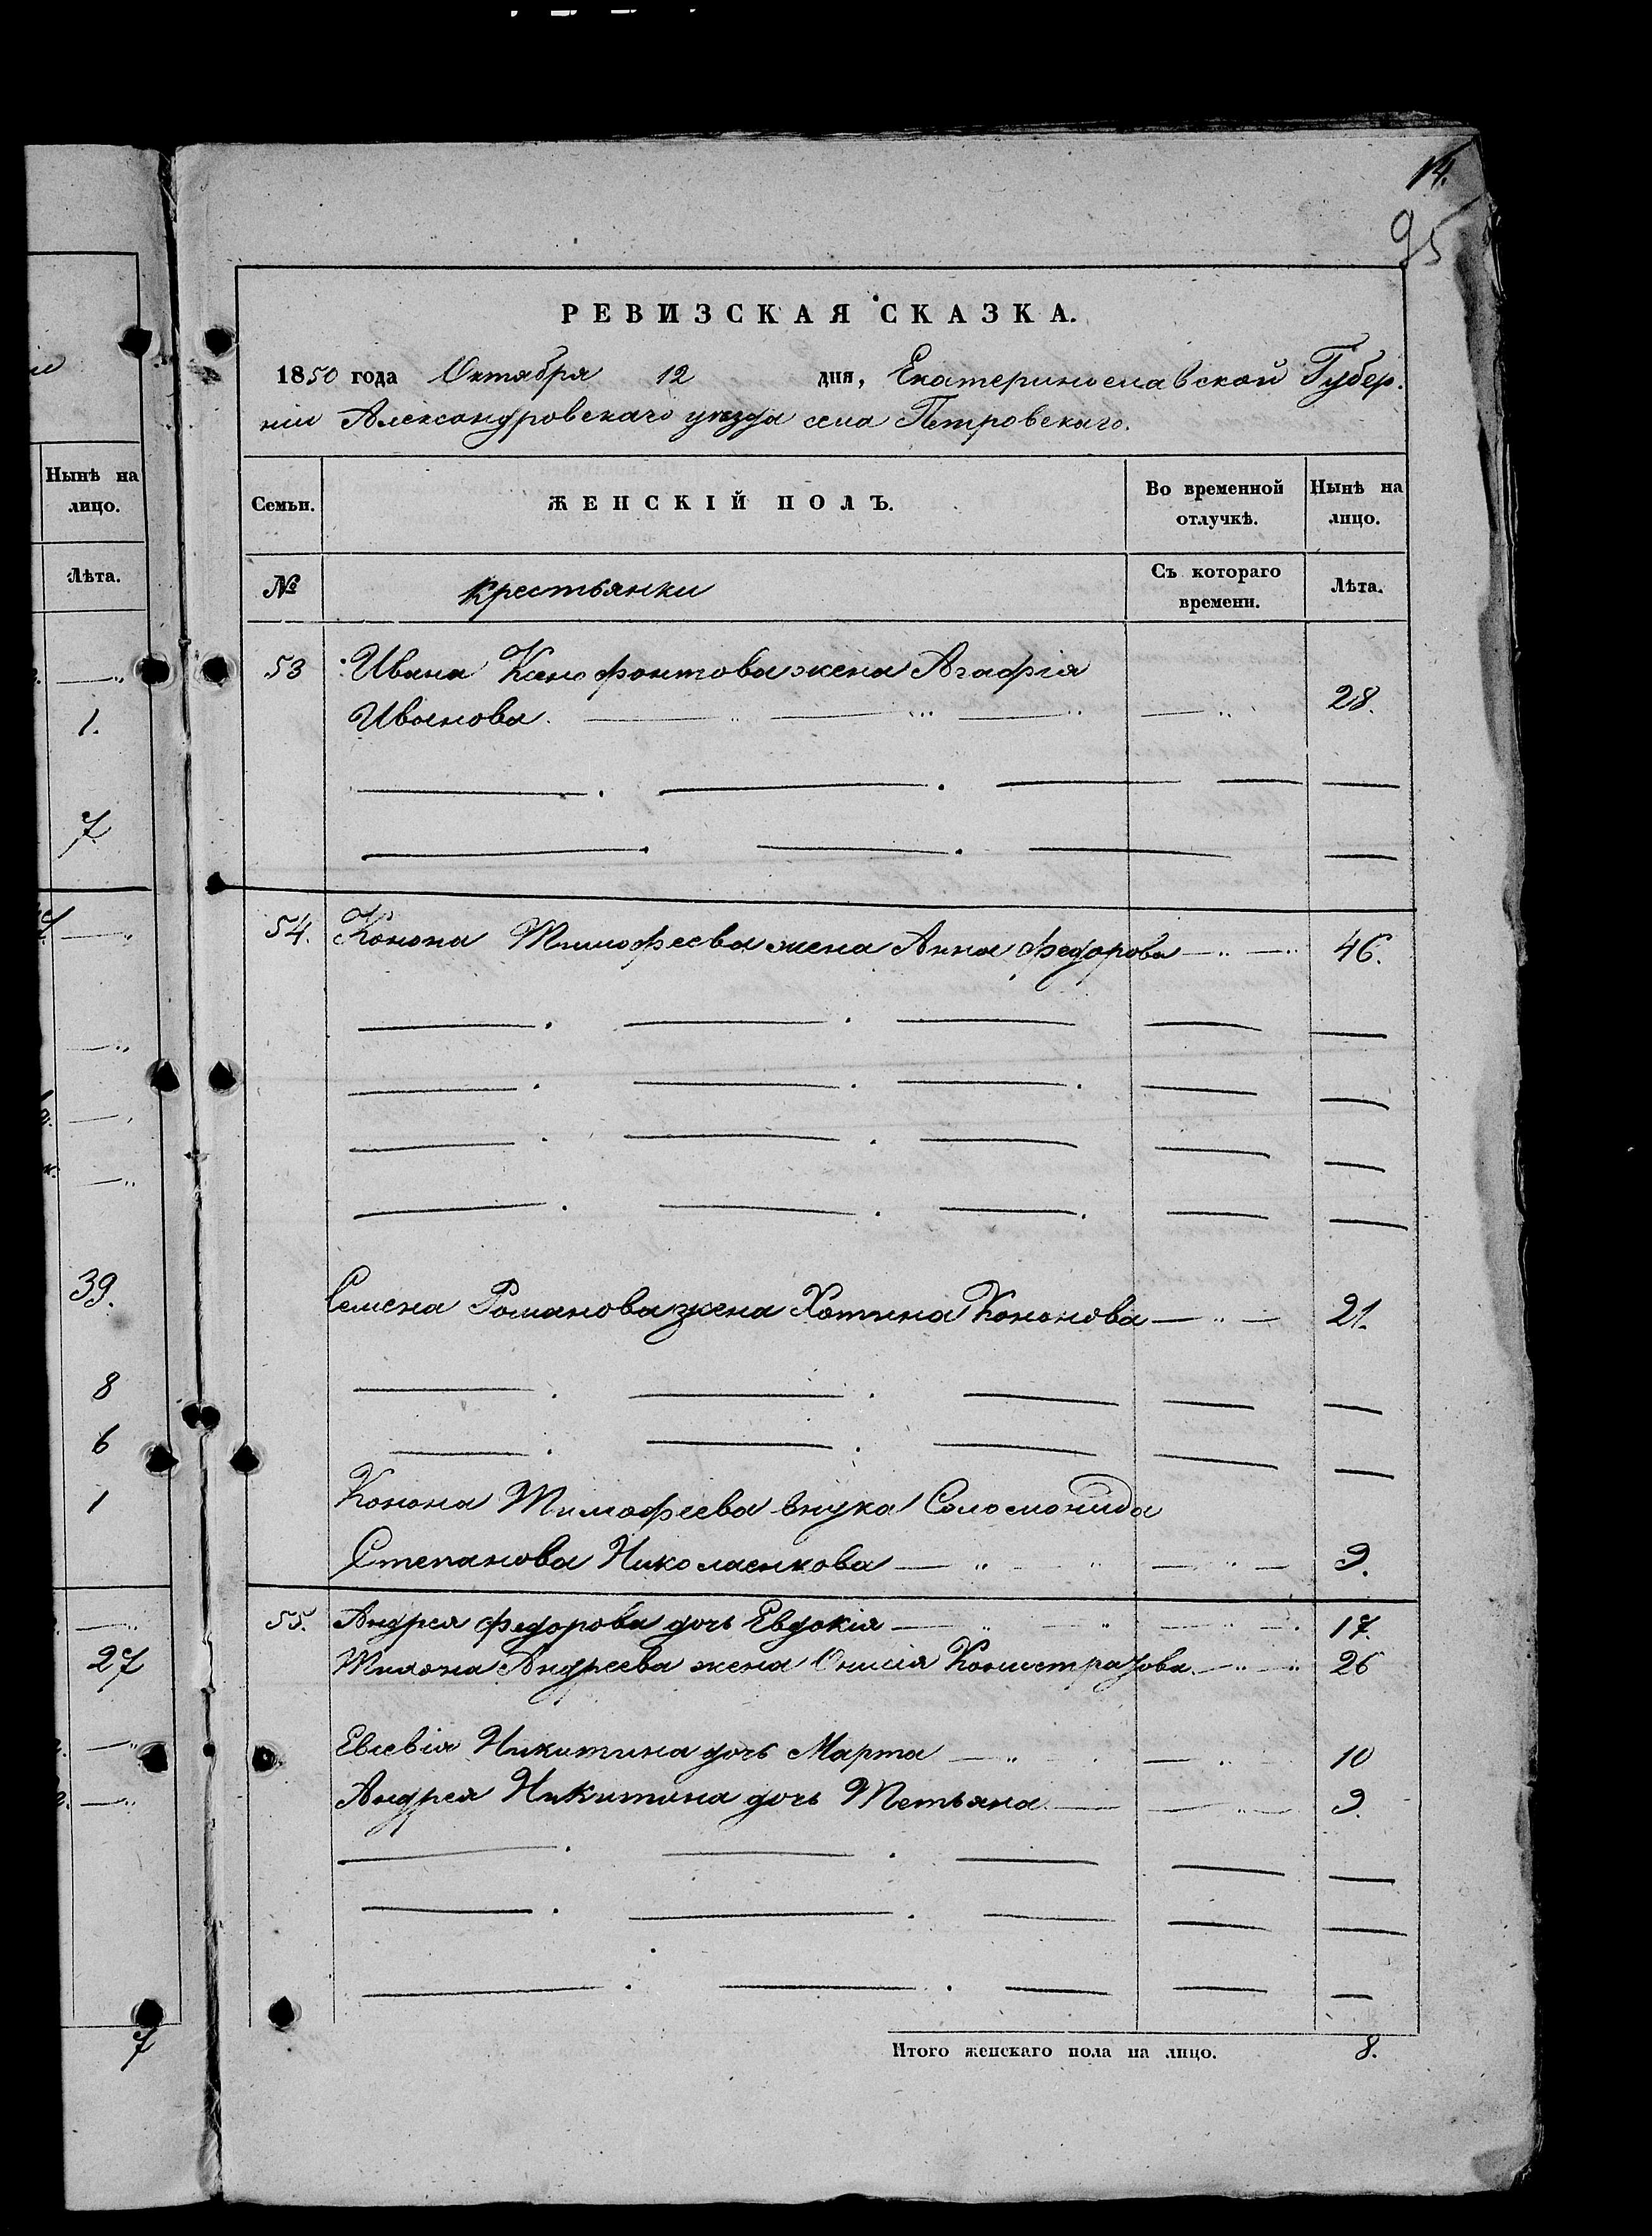 14.
95
РЕВИЗСКАЯ СКАЗКА.
1850 года Октября 12 дня, Екатеринославской Губер.
нии Александровскаго уѣзда села Петровскаго.
Нынѣ на
лицо.
Лѣта.
Семьи.
ЖЕНСКІЙ ПОЛЪ.
Во временной
отлучкѣ.
Нынѣ на
лицо.
№
крестьянки
Съ котораго
времени.
Лѣта.
53 Ивана Ксенофонтова жена Агафія
Иванова. 28.
54. Конона Тимофеева жена Анна Федорова 46.
Семена Романова жена Хотина Кононова 21.
Конона Тимофеева внука Соломонида
Степанова Николаенкова 9.
55. Андрея Федорова дочь Евдокія 17.
Андреева жена Онисія 26
Евсевія Никитина дочь Марта 10
Андрея Никитина дочь Тетьяна 9.
Итого женскаго пола на лицо. 8.
1.
7
39.
8
6
1
27
7